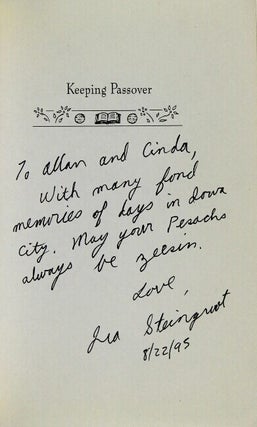 Keeping Passover
To Allan and Cinda,
With many fond
memories of days in Iowa
City. May your Pesachs
always be zeesin.
Love,
Ira Steingroot
8/22/95